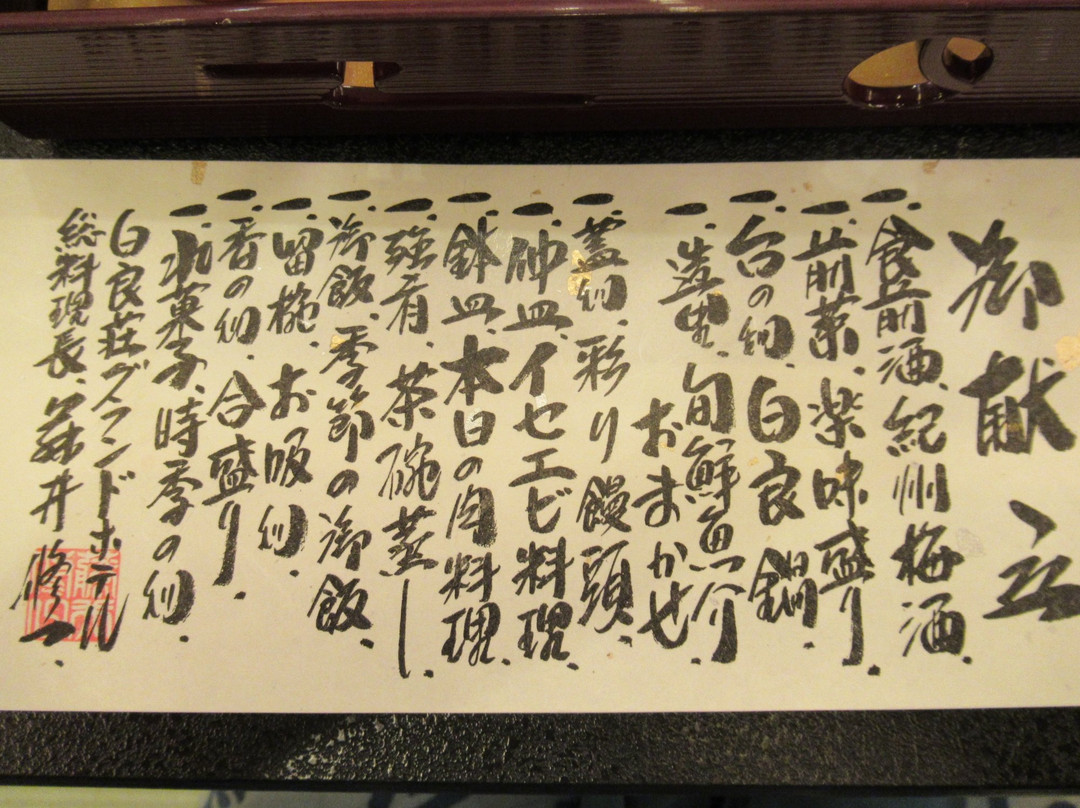 御献立
一、食前酒、紀州梅酒.
一、前菜、楽味盛り.
一、台の物、白良鍋.
一、造里、旬鮮魚介
おまかせ.
一、蓋物、彩り饅頭.
一、仲皿、イセエビ料理.
一、鉢皿、本日の肉料理.
一、強肴、茶碗蒸し.
一、御飯、季節の御飯.
一、留椀、お吸物.
一、香の物、合盛り.
一、水菓子、時季の物.
白良荘グランドホテル
総料理長、藤井修一.